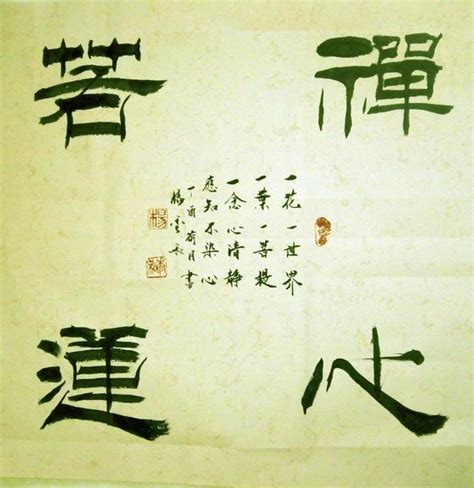 禪心
若蓮
一花一世界
一葉一菩提
一念心清静
應知不染心
丁酉荷月書
楊